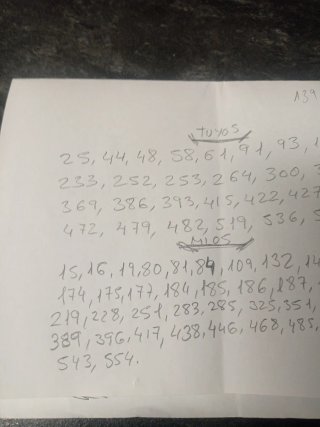 139
TUYOS
25, 44, 48, 58, 61, 91, 93, 1
233, 252, 253, 264, 300, 3
369, 386, 393, 415, 422, 427
472, 479, 482, 519, 536, 5
MIOS
15, 16, 19, 80, 81, 84, 109, 132, 14
174, 175, 177, 184, 185, 186, 187, 1
219, 228, 251, 283, 285, 325, 351,
389, 396, 417, 438, 446, 468, 485,
543, 554.